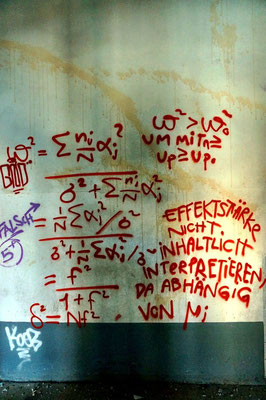 ω² = Σ nᵢ/N αᵢ²
σ² + Σ nᵢ/N αᵢ²
= 1/N Σ αᵢ² / σ²
σ²+ 1/N Σ αᵢ / σ²
= f²
1 + f²
δ² = Nf².
ω² > ω₀²
UM MIT n≥
UP≥UP.
EFFEKTSTÄRKE
NICHT
INHALTLICH
INTERPRETIEREN,
DA ABHÄNGIG
VON μᵢ
FALSCH
5